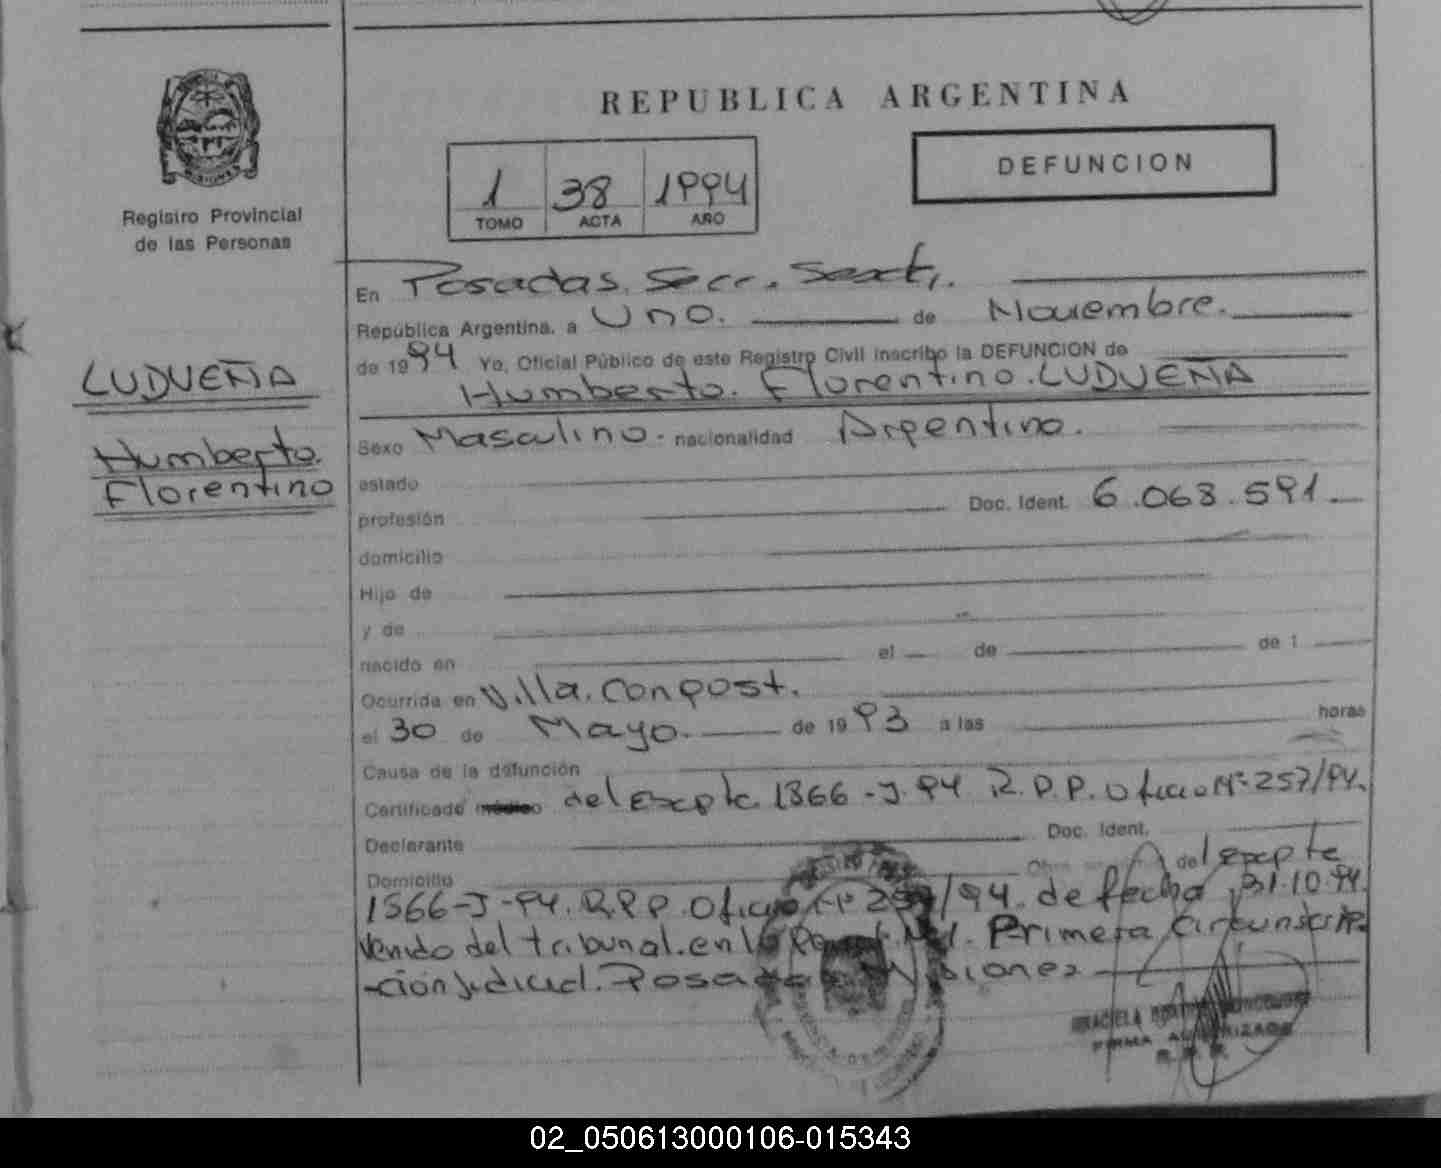 REPUBLICA ARGENTINA
DEFUNCION
1 38 1994
TOMO ACTA AÑO
MISIONES
Registro Provincial
de las Personas
En Posadas. Secc. Sexta.
República Argentina, a Uno. de Noviembre.
de 1994 Yo, Oficial Público de este Registro Civil inscribo la DEFUNCION de
Humberto. Florentino. LUDUEÑA
LUDUEÑA
Humberto.
Florentino
Sexo Masculino. nacionalidad Argentino.
estado
profesión Doc. Ident. 6.068.591
domicilio
Hijo de
y de
nacido en el de de 1
Ocurrida en Villa. Conpost.
el 30 de Mayo. de 1993 a las horas
Causa de la defunción
Certificado médico del Expte. 1366-J-94 R.P.P. Oficio Nº 257/94.
Declarante Doc. Ident.
Domicilio del Expte
1366-J-94. R.P.P. Oficio Nº 257/94. de fecha 31.10.94.
Venido del tribunal. en lo Penal. Nº 1. Primera Circunscrip
-ción judicial. Posadas Misiones
GRACIELA
FIRMA AUTORIZADA
R.P.P.
02_050613000106-015343